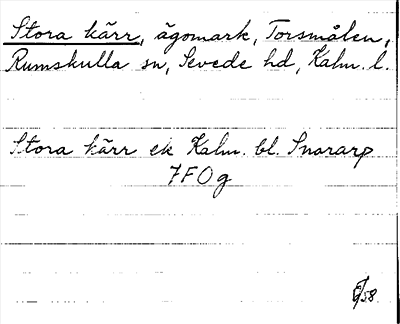 Stora kärr, ägomark, Torsmålen,
Rumskulla sn, Sevede hd, Kalm. l.
Stora kärr ek Kalm. bl. Snararp
7F0g
/58